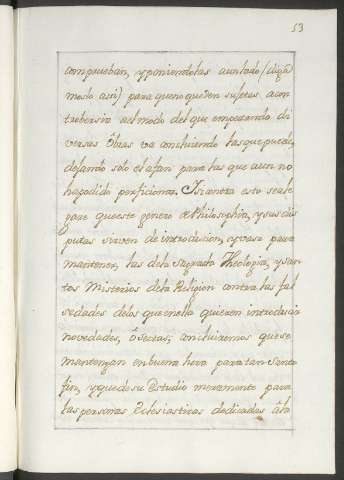 53
comprueban, y poniendolas a un lado (diga
moslo asi) para que no queden sujetas a con
trobersia al modo del que empezando di
versas Obras va concluiendo las que puede,
dejando solo el afan para las que aun no
ha podido perficionar. Si contra esto se ale
gare que este genero de Philosophia, y sus dis
putas sirven de introducion, y vaso para
mantener las de la Sagrada Theologia, y san
tos Misterios de la Religion contra las fal
sedades de los que en ella quieren introducir
novedades, ó sectas; concluiremos que se
mantengan en buena hora para tan Santo
fin, y quede su Estudio meramente para
las personas Eclesiasticas dedicadas á la